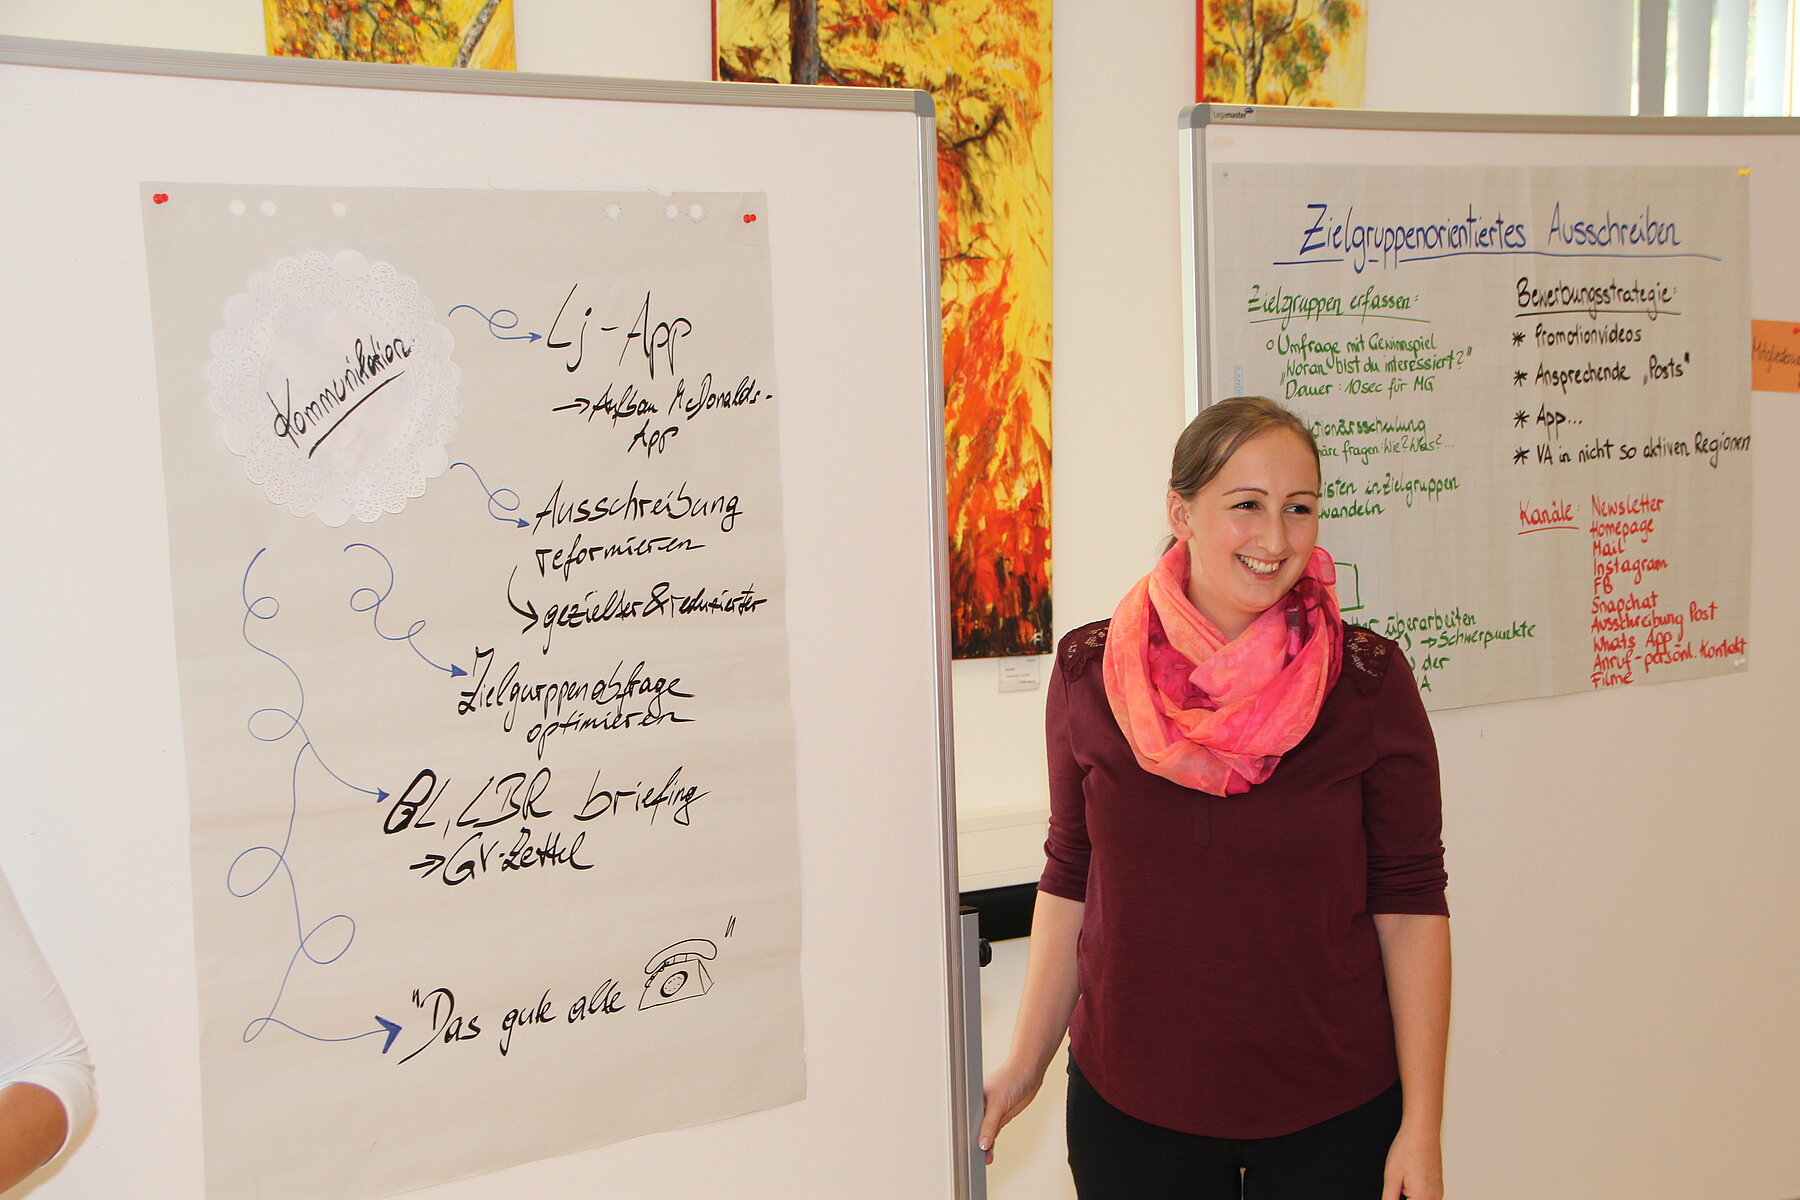 Kommunikation
Lj-App
→ Aufbau McDonalds-
App
Ausschreibung
reformieren
gezielter & reduzierter
Zielgurppenabfrage
optimieren
BL, LBR briefing
→ GV-Zettel
"Das gute alte "
Legamaster
Zielgruppenorientiertes Ausschreiben
Zielgruppen erfassen:
o Umfrage mit Gewinnspiel
„Woran bist du interessiert?"
Dauer: 10sec für MG
fragen: Wie? Was?...
in Zielgruppen
wandeln
überarbeiten
→ Schwerpunkte
der
Bewerbungsstrategie:
* Promotionvideos
* Ansprechende „Posts"
* App...
* VA in nicht so aktiven Regionen
Kanäle: Newsletter
Homepage
Mail
Instagram
FB
Snapchat
Ausschreibung Post
Whats App
Anruf - persönl. Kontakt
Filme